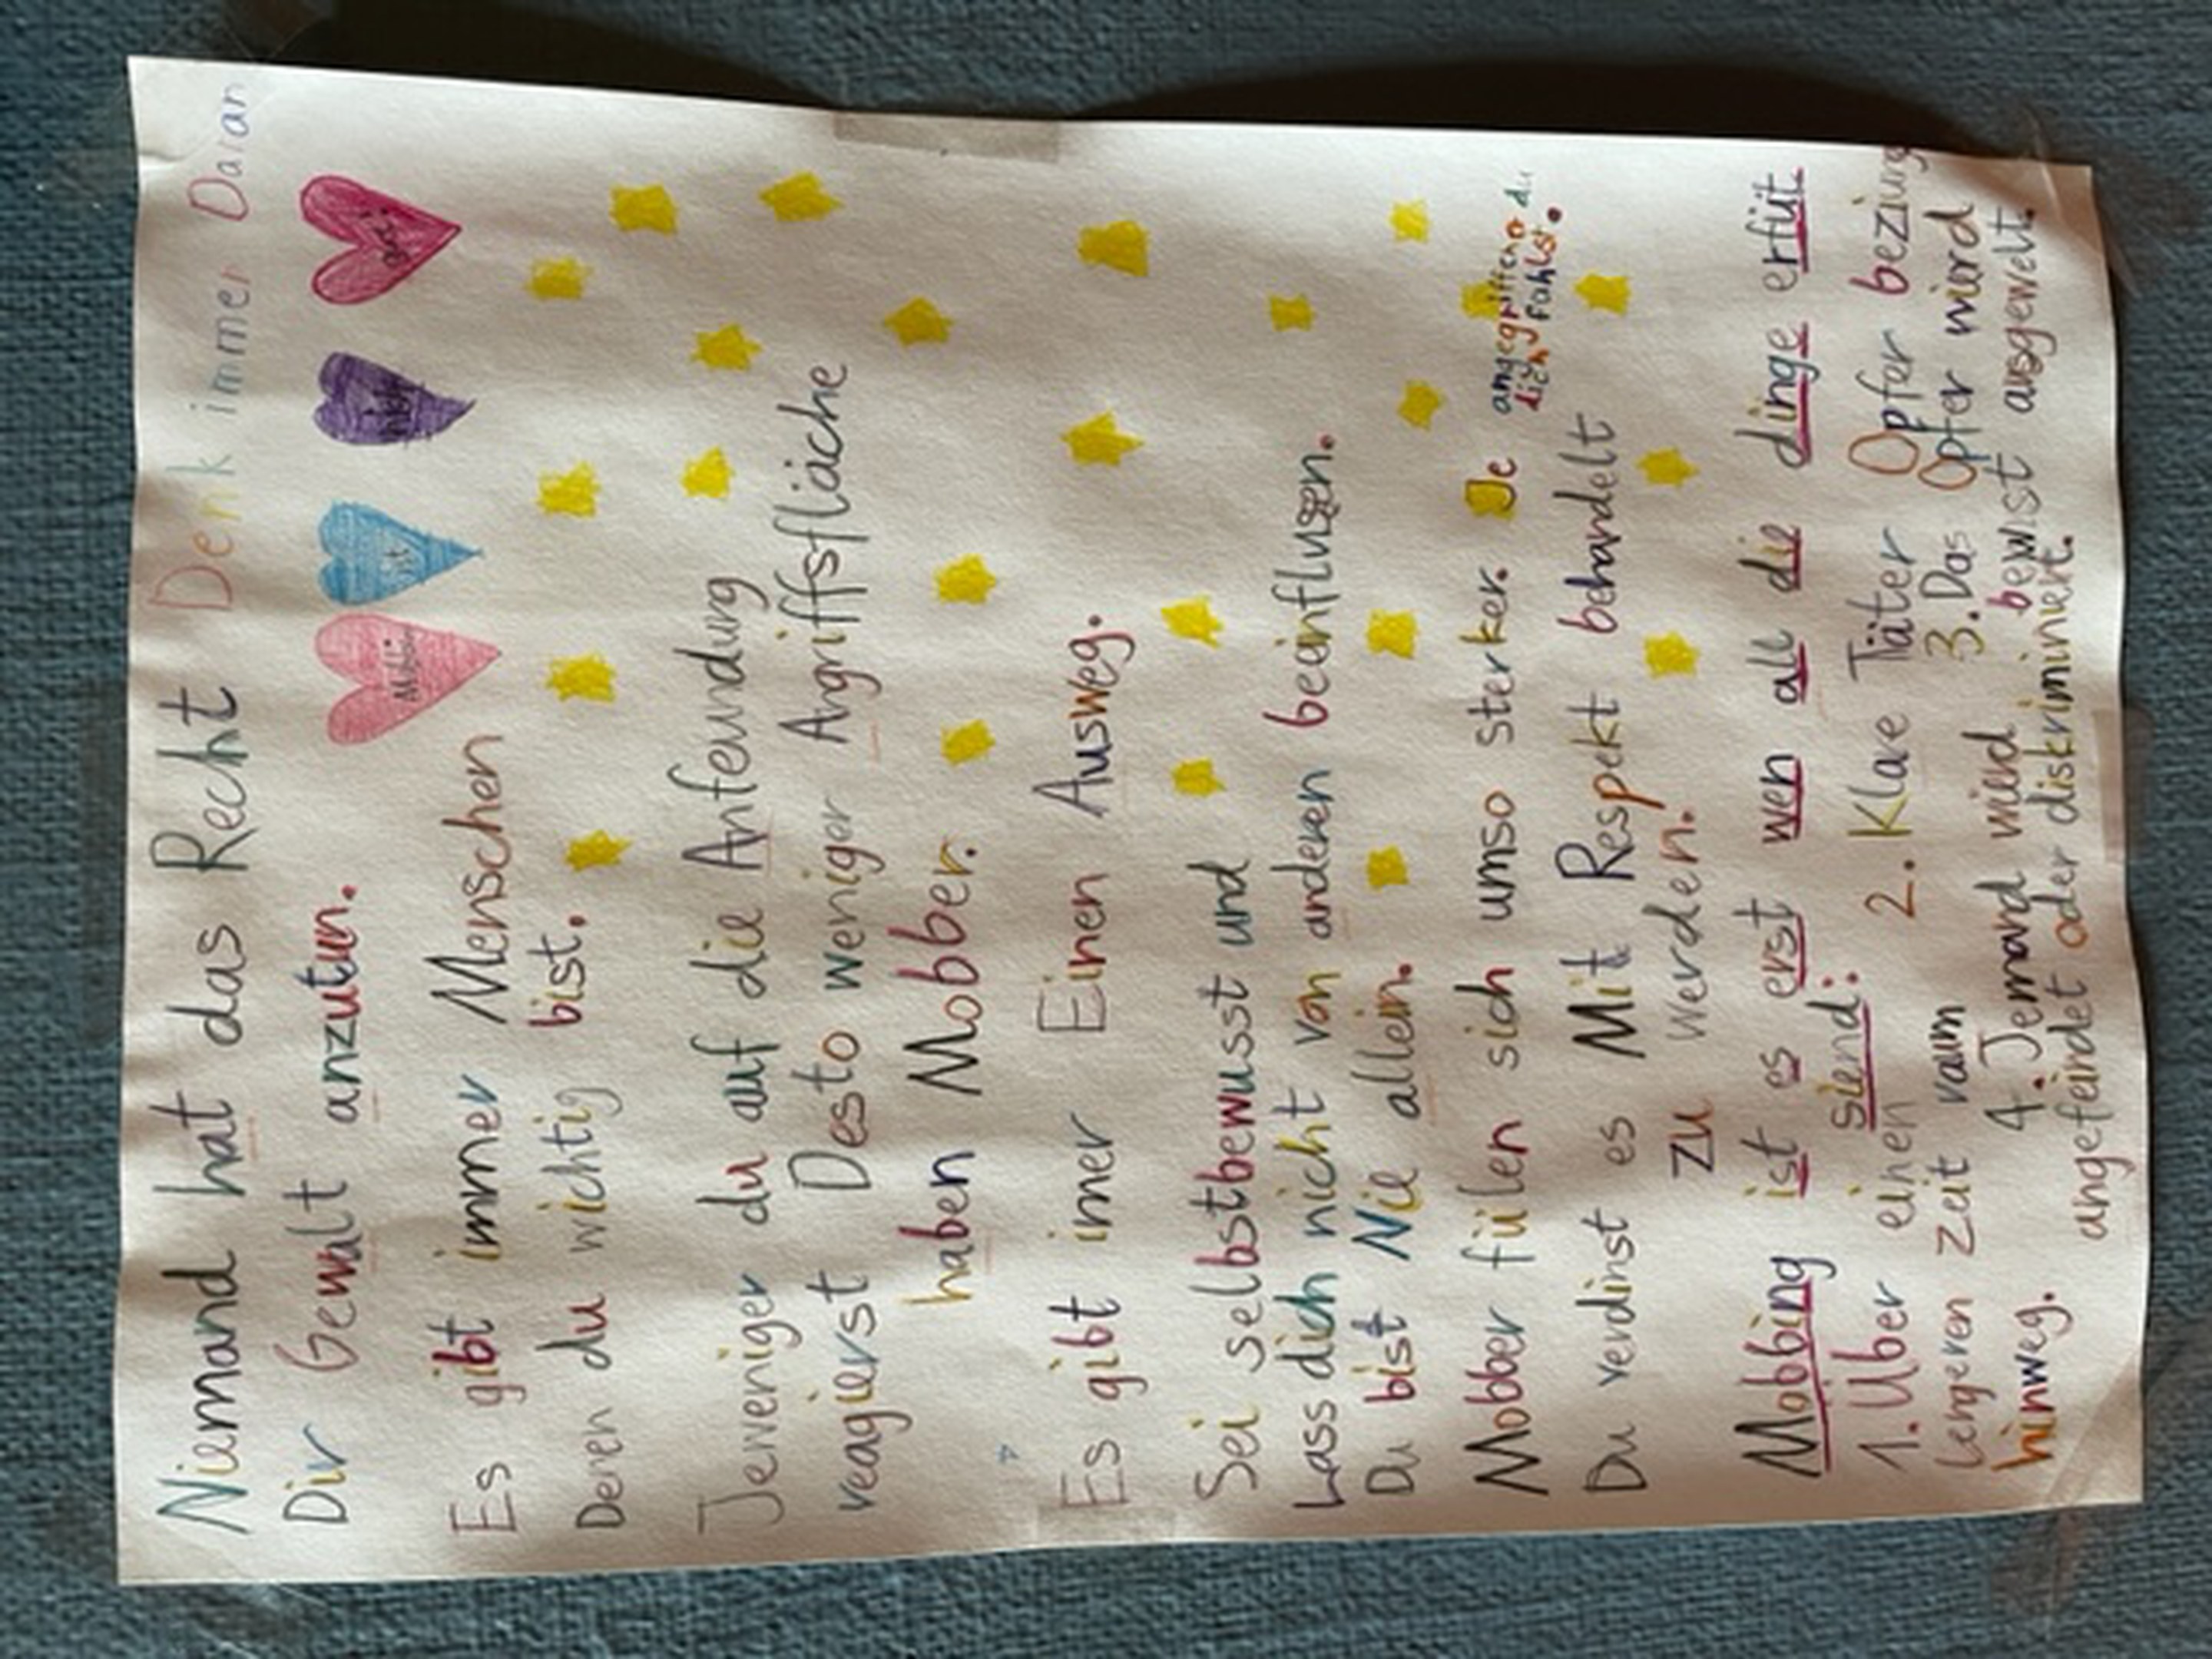 Niemand hat das Recht Denk immer Daran
Dir Gewalt anzutun.
Mobbing ist nicht
Es gibt immer Menschen
Deren du wichtig bist.
Jeweniger du auf die Anfeundung
reagierst Desto weniger Angriffsfläche
haben Mobber.
Es gibt imer Einen Ausweg.
Sei selbstbewusst und
Lass dich nicht von anderen beeinflussen.
Du bist Nie allein.
Mobber fülen sich umso sterker. Je angegriffener du
dich fühlst.
Du verdinst es Mit Respekt behandelt
zu werden.
Mobbing ist es erst wen all die dinge erfüt
siend:
1. Über einen
lengeren zeit raum
hinweg.
2. Klare Täter Opfer beziung
3. Das Opfer wird
bewist ausgewelt.
4. Jemand wird
angefeindet oder diskriminiert.